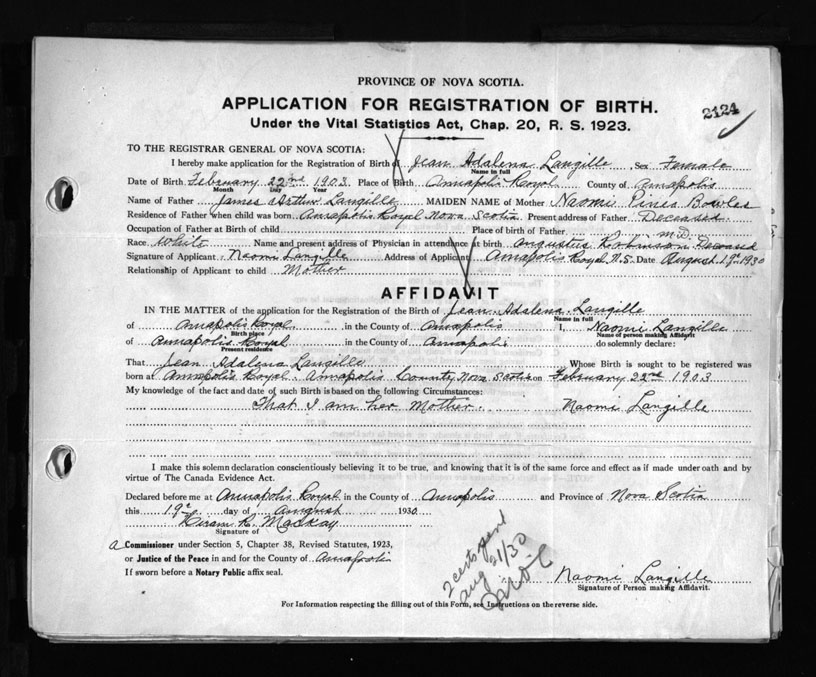 PROVINCE OF NOVA SCOTIA.
APPLICATION FOR REGISTRATION OF BIRTH.
2124
Under the Vital Statistics Act, Chap. 20, R. S. 1923.
TO THE REGISTRAR GENERAL OF NOVA SCOTIA:
I hereby make application for the Registration of Birth of Jean Adalena Langille Sex Female
Name in full
Date of Birth February 22nd 1903 Place of Birth Annapolis Royal County of Annapolis
Month Day Year
Name of Father James Arthur Langille MAIDEN NAME of Mother Naomi Bowles
Residence of Father when child was born Annapolis Royal Nova Scotia Present address of Father Deceased
Occupation of Father at Birth of child Place of birth of Father
M.D.
Race White Name and present address of Physician in attendance at birth Augustus Robinson Deceased
Signature of Applicant Naomi Langille Address of Applicant Annapolis Royal N.S. Date August 19th 1930
Relationship of Applicant to child Mother
AFFIDAVIT
IN THE MATTER of the application for the Registration of the Birth of Jean Adalena Langille
Name in full
of Annapolis Royal in the County of Annapolis I, Naomi Langille
Birth place Name of person making Affidavit
of Annapolis Royal in the County of Annapolis do solemnly declare:
Present residence
That Jean Adalena Langille Whose Birth is sought to be registered was
born at Annapolis Royal Annapolis County Nova Scotia on February 22nd 1903
My knowledge of the fact and date of such Birth is based on the following Circumstances:
That I am her Mother. Naomi Langille
I make this solemn declaration conscientiously believing it to be true, and knowing that it is of the same force and effect as if made under oath and by
virtue of The Canada Evidence Act.
Declared before me at Annapolis Royal in the County of Annapolis and Province of Nova Scotia
this 19th day of August 1930
Hiram R. Mackay
Signature of
a Commissioner under Section 5, Chapter 38, Revised Statutes, 1923,
or Justice of the Peace in and for the County of Annapolis
If sworn before a Notary Public affix seal.
2 certs sent
Aug 21/30
Naomi Langille
Signature of Person making Affidavit.
For Information respecting the filling out of this Form, see Instructions on the reverse side.